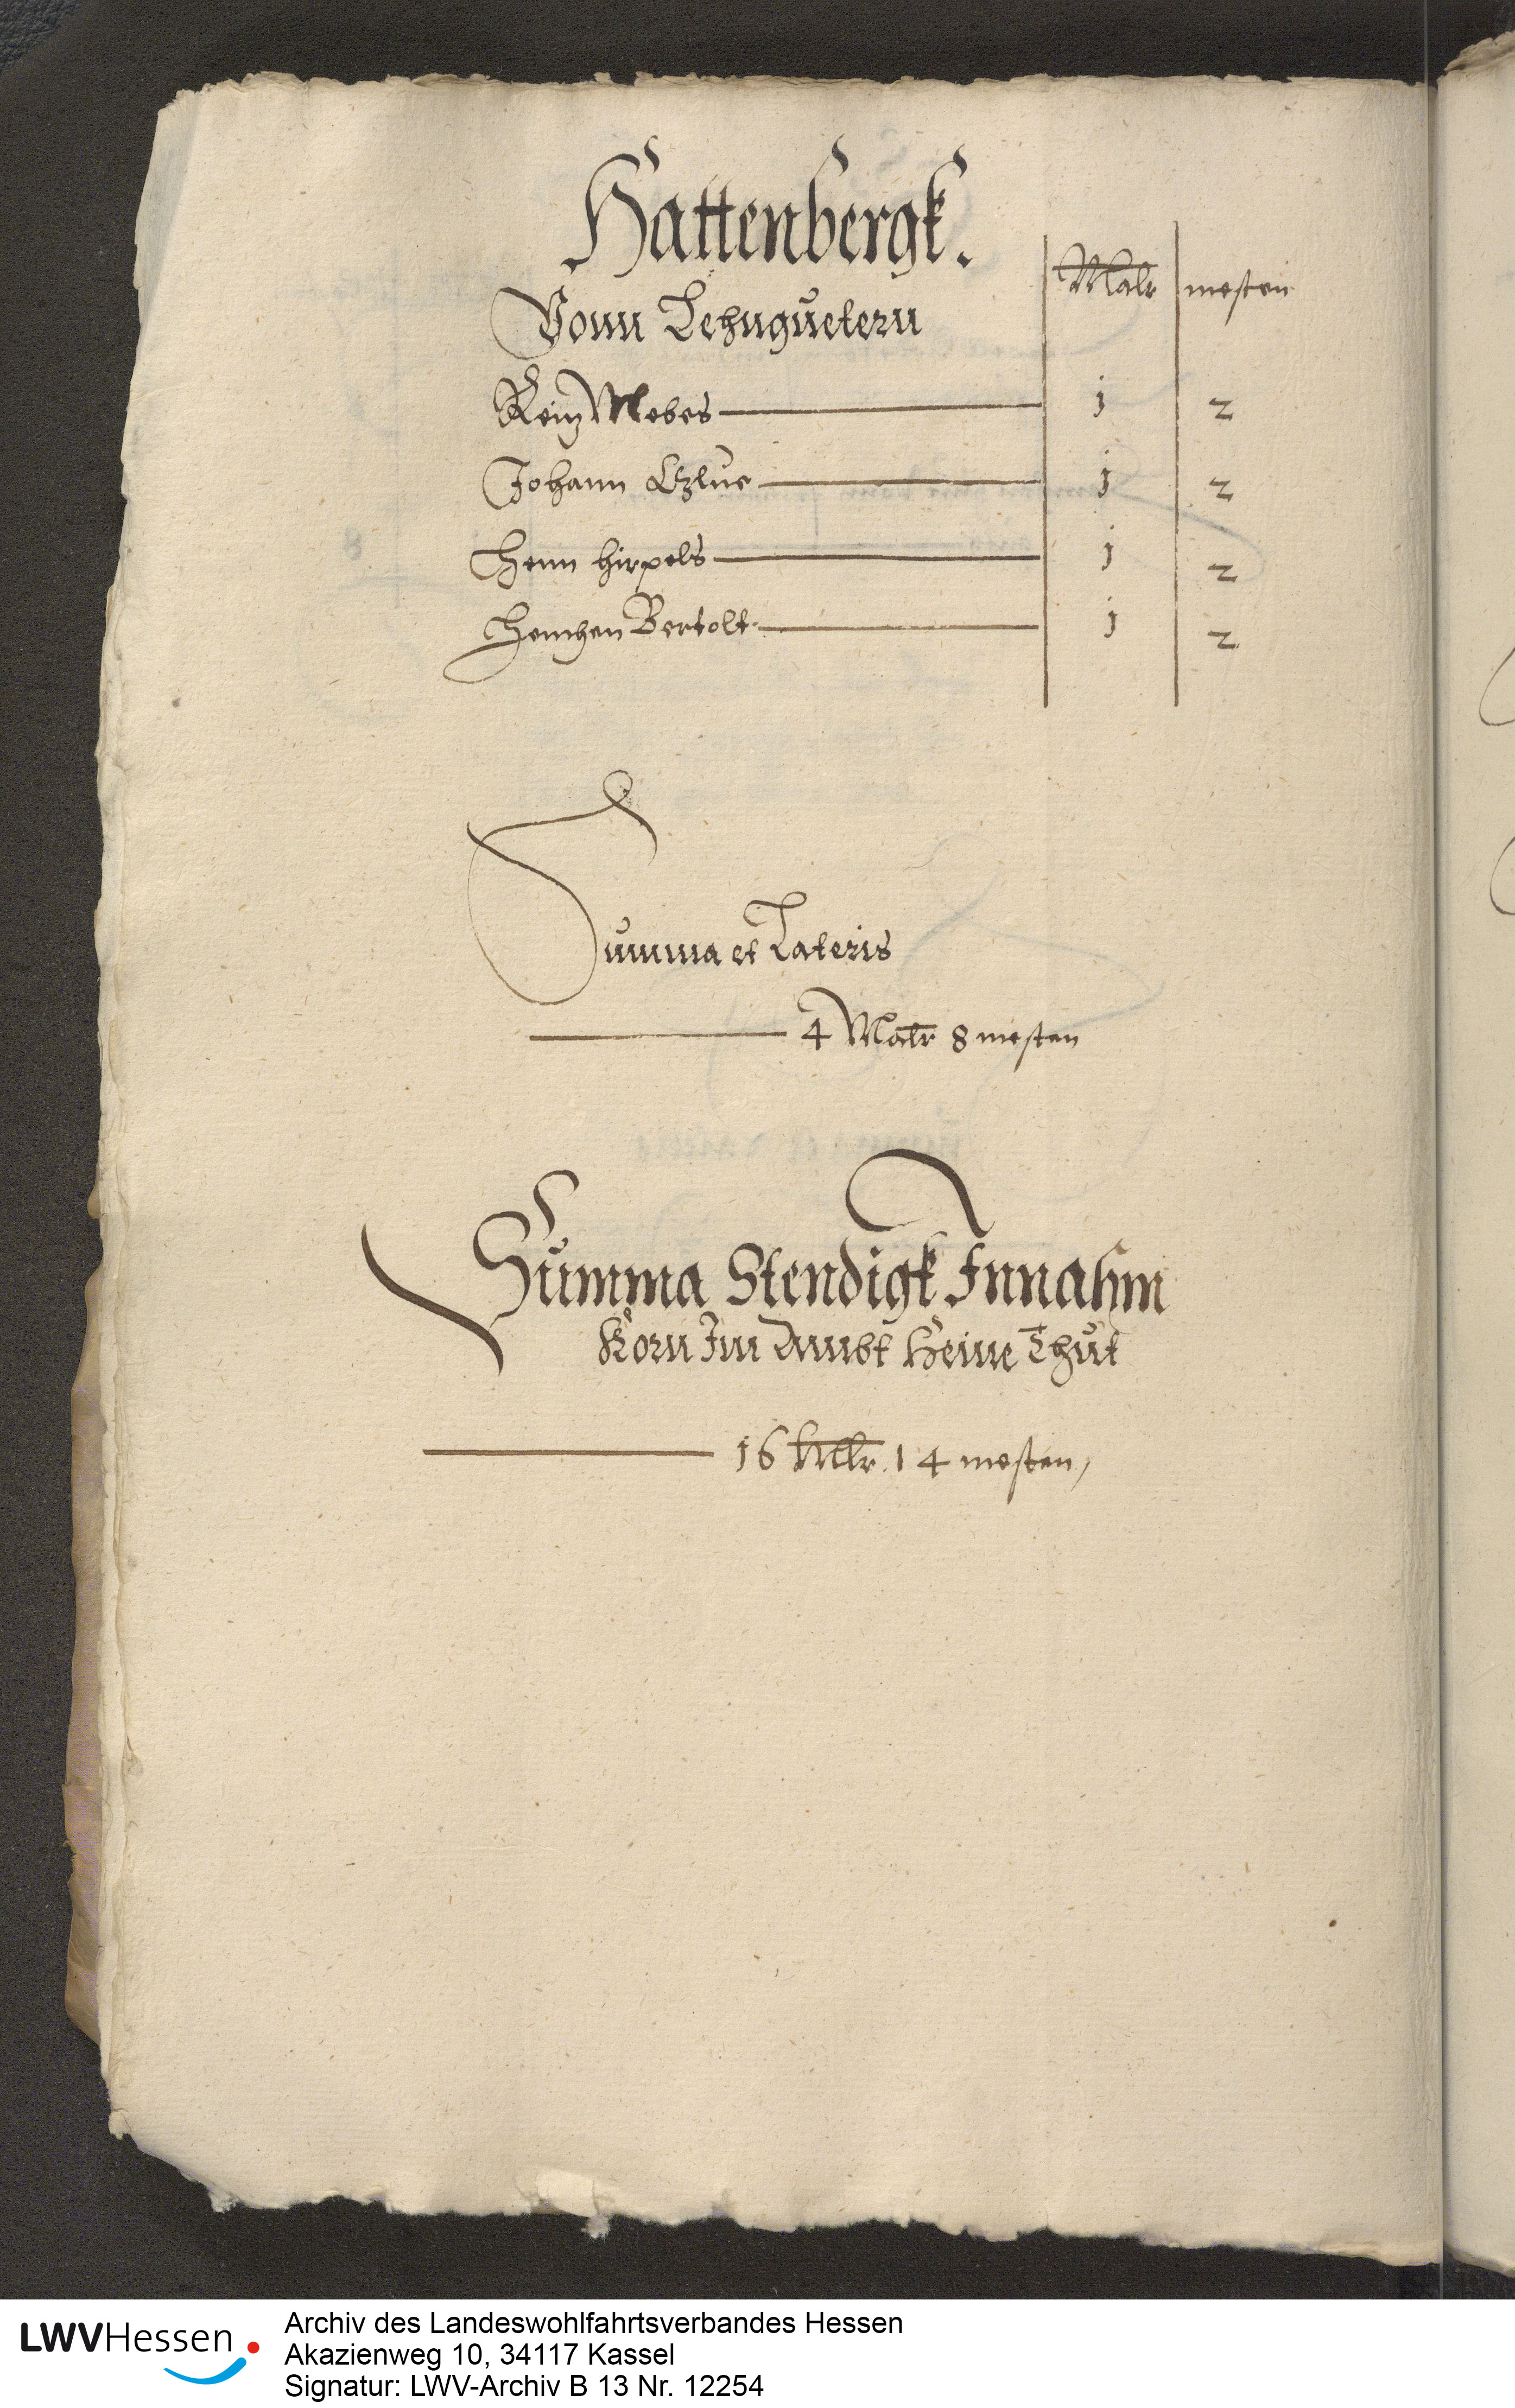 Hattenbergk.
Malr mesten
Vonn Lehnguetern
Keitz Mebes 1 2
Johann 1 2
Henn hirpels 1 2
Henchen Bertolt 1 2
Summa et Lateris
4 Malr 8 mesten
Summa Stendigk Innahm
Korn Im Ambt Keine Thut
16 Mlr 14 mesten,
LWVHessen
Archiv des Landeswohlfahrtsverbandes Hessen
Akazienweg 10, 34117 Kassel
Signatur: LWV-Archiv B 13 Nr. 12254